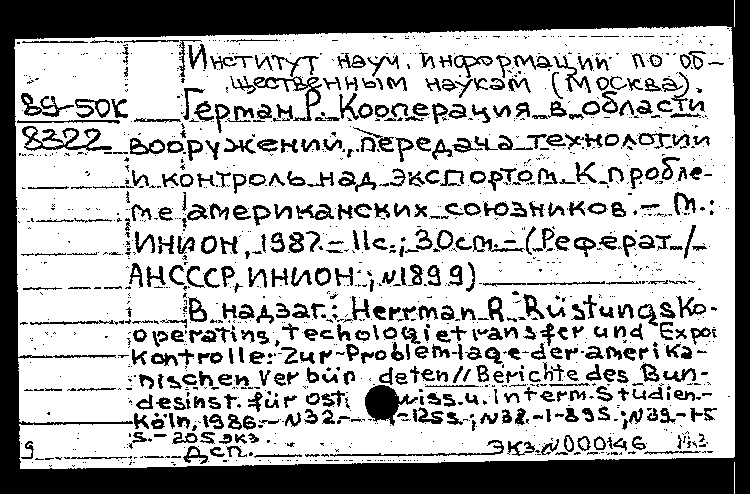 Институт науч. информации по об-
щественным наукам (Москва).
89-50К
Герман Р. Кооперация в области
8322
вооружений, передача технологии
и контроль над экспортом. К пробле-
ме американских союзников. - М.:
ИНИОН, 1987. - 11с.; 30см. - (Реферат /
АНСССР, ИНИОН; N1899)
В надзаг.: Herrman R. Rüstungsko-
operatins, techologietransfer und Expor
kontrolle: Zur Problemlage der amerika-
nischen Verbün deten // Berichte des Bun-
desinst. für ost wiss. u. interm. Studien.-
Köln, 1986. - N32. - -125s.; N38. -1-89S.; N39. -1-5
S. - 205 экз.
9 Дсп. экз. N000146